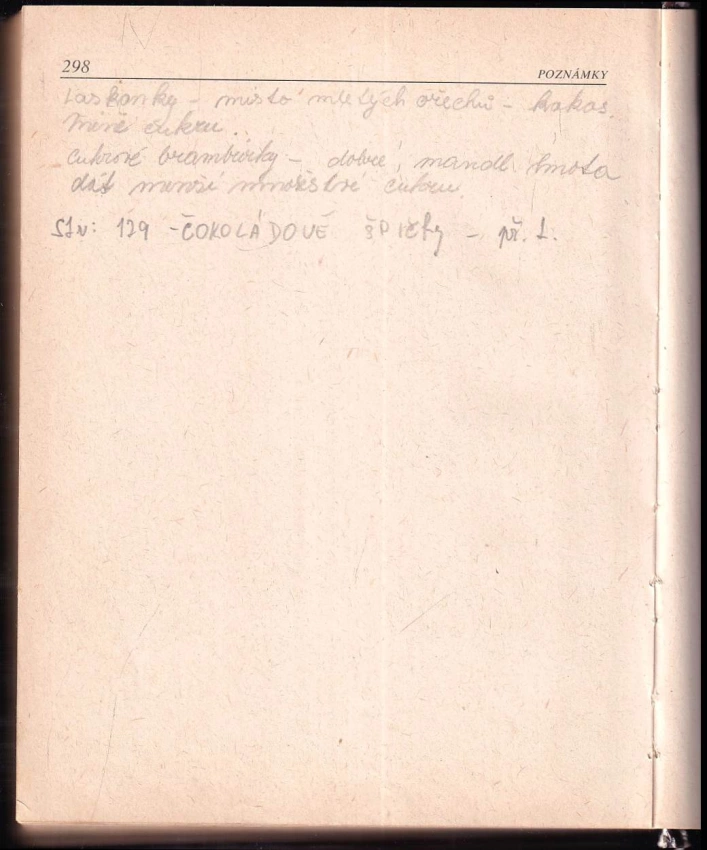 298
POZNÁMKY
Laskonky - místo mletých ořechů - kakao.
Méně cukru.
Cukrové brambůrky - dobré, mandl. hmota
dát menší množství cukru.
Str: 129 - ČOKOLÁDOVÉ ŠPIČKY - př. 1.